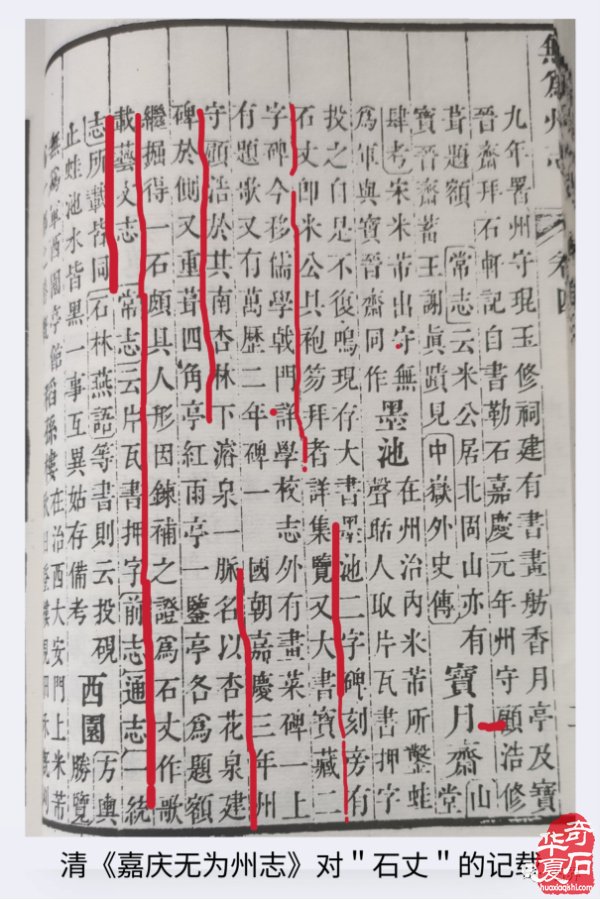 無爲州志 卷四
九年署州守琨玉修祠建有書畫舫香月亭及寶
晉齋拜石軒記自書勒石嘉慶元年州守顧浩修
葺題額 常志云米公居北固山亦有 寶月齋 山堂
寶晉齋蓄王謝眞蹟見中嶽外史傳
肆考宋米芾出守無 墨池 在州治內米芾所鑿蛙
爲軍與寶晉齋同作 聲聒人取片瓦書押字
投之自是不復鳴現存大書墨池二字碑刻旁有
石丈卽米公具袍笏拜者詳集覽又大書寶藏二
字碑今移儒學戟門詳學校志外有畫菜碑一上
有題歌又有萬歷二年碑一 國朝嘉慶三年州
守顧浩於其南杏林下溶泉一脈名以杏花泉建
碑於側又重葺四角亭紅雨亭一鑒亭各爲題額
繼掘得一石頗具人形因鍊補之證爲石丈作歌
載藝文志 常志云片瓦書押字前志通志一統
志所載皆同石林燕語等書則云投硯 方輿
止蛙池水皆黑一事互異姑存備考 西園 勝覽
無爲軍西園亭館 在治西大安門上米芾
清《嘉庆无为州志》对＂石丈＂的记载
华夏奇石
huaxiaqishi.com